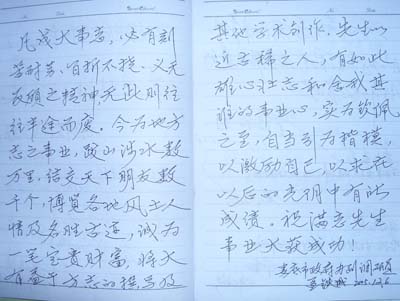 凡成大事者，必有刻
苦耐劳、百折不挠、义无
反顾之精神，无此则往
往半途而废。今为地方
志之事业，跋山涉水数
万里，结交天下朋友数
千个，博览各地风土人
情及名胜古迹，诚为
一笔宝贵财富，将大
有益于方志的撰写及
其他学术创作。先生以
近古稀之人，有如此
雄心壮志和舍我其
谁的事业心，实为钦佩
之至，自当引为楷模，
以激励自己，以求在
以后的光阴中有所
成绩。祝满志先生
事业大获成功！
市政府